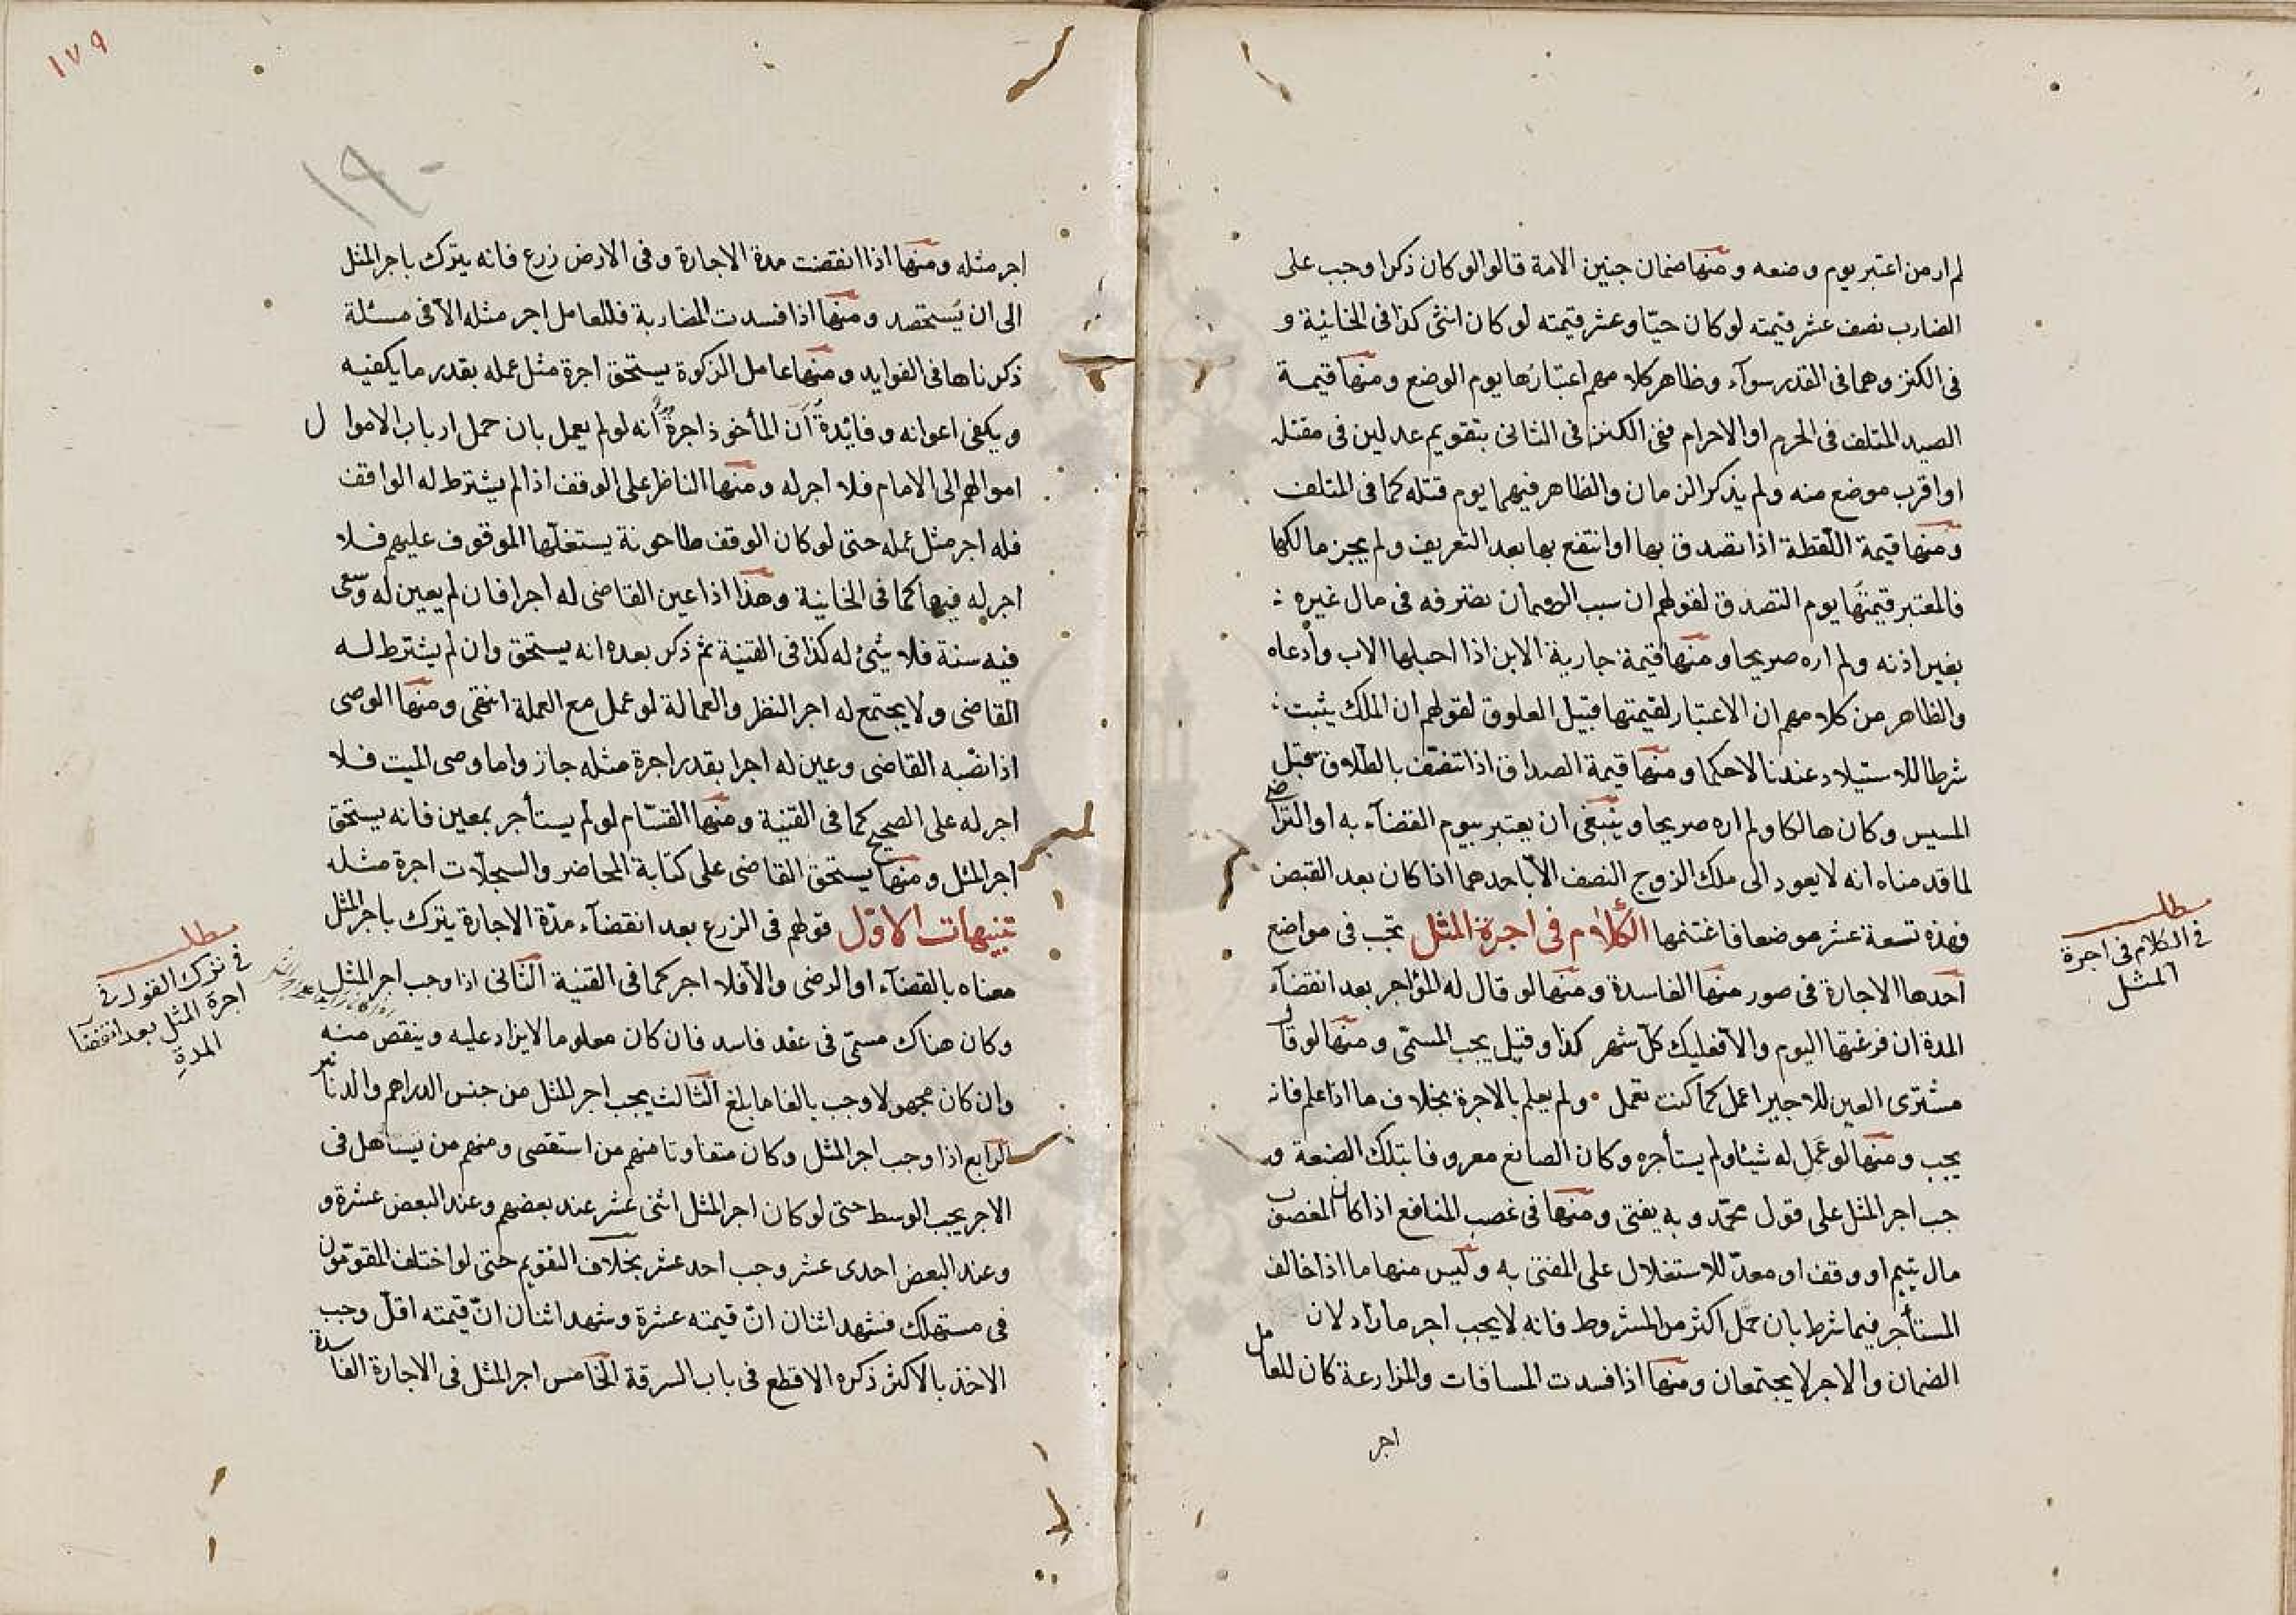 لم ار من اعتبر يوم وضعه ومنها ضمان جنين الامة قالوا لو كان ذكرا وجب على
الضارب نصف عشر قيمته لو كان حيّا وعشر قيمته لو كان انثى كذا فى الخانية و
فى الكنز وهما فى القدر سوآء وظاهر كلامهم اعتبارها يوم الوضع ومنها قيمة
الصيد المتلف فى الحرم او الاحرام ففى الكنز فى الثانى بتقويم عدلين فى مقتله
او اقرب موضع منه ولم يذكر الزمان والظاهر فيهما يوم قتله كما فى المتلف
ومنها قيمة اللّقطة اذا تصدق بها او انتفع بها بعد التعريف ولم يجز مالكها
فالمعتبر قيمتها يوم التصدق لقولهم ان سبب الضمان تصرفه فى مال غيره
بغير اذنه ولم اره صريحا ومنها قيمة جارية الابن اذا احبلها الاب وادعاه
والظاهر من كلامهم ان الاعتبار لقيمتها قبيل العلوق لقولهم ان الملك يثبت
شرطا للاستيلاد عندنا لا حكما ومنها قيمة الصداق اذا تنصّف بالطّلاق قبل
المسيس وكان هالكا ولم اره صريحا وينبغى ان يعتبر بيوم القضآء به او التراضى
لما قدمناه انه لا يعود الى ملك الزوج النصف الّا باحدهما اذا كان بعد القبض
فهذه تسعة عشر موضعا فاغتنمها الكلام فى اجرة المثل تجب فى مواضع
احدها الاجارة فى صور منها الفاسدة ومنها لو قال له المؤاجر بعد انقضآء
المدة ان فرغتها اليوم والّا فعليك كلّ شهر كذا وقيل يجب المسمّى ومنها لو قال
مشترى العين للاجير اعمل كما كنت تعمل ولم يعلم بالاجرة بخلاف ما اذا علم فانه
يجب ومنها لو عمل له شيئا ولم يستأجره وكان الصانع معروفا بتلك الصنعة و
جب اجر المثل على قول محمّد وبه يفتى ومنها فى غصب المنافع اذا كان المغصوب
مال يتيم او وقف او معدّ للاستغلال على المفتى به وليس منها ما اذا خالف
المستأجر فيما شرط بان حمّل اكثر من المشروط فانه لا يجب اجر ما زاد لان
الضمان والاجر لا يجتمعان ومنها اذا فسدت المساقات والمزارعة كان للعامل
اجر
مطلب
فى الكلام فى اجرة
المثل
١٧٩
١٩٠
اجر مثله ومنها اذا انقضت مدة الاجارة وفى الارض زرع فانه يترك باجر المثل
الى ان يستحصد ومنها اذا فسدت المضاربة فللعامل اجر مثله الّا فى مسئلة
ذكرناها فى الفوايد ومنها عامل الزكوة يستحق اجرة مثل عمله بقدر ما يكفيه
ويكفى اعوانه وفائدة ان المأخوذ اجرة انه لو لم يعمل بان حمل ارباب الاموال
اموالهم الى الامام فلا اجر له ومنها الناظر على الوقف اذا لم يشترط له الواقف
فله اجر مثل عمله حتى لو كان الوقف طاحونة يستغلّها الموقوف عليهم فلا
اجر له فيها كما فى الخانية وهذا اذا عين القاضى له اجرا فان لم يعين له وسعى
فيه سنة فلا شئ له كذا فى القنية ثم ذكر بعده انه يستحق وان لم يشترط له
القاضى ولا يجتمع له اجر النظر والعمالة لو عمل مع العملة انتهى ومنها الوصى
اذا نصّبه القاضى وعين له اجرا بقدر اجرة مثله جاز واما وصى الميت فلا
اجر له على الصحيح كما فى القنية ومنها القسّام لو لم يستأجر بمعين فانه يستحق
اجر المثل ومنها يستحق القاضى على كتابة المحاضر والسجلّات اجرة مثله
تنبيهات الاوّل قولهم فى الزرع بعد انقضآء مدّة الاجارة يترك باجر المثل
معناه بالقضآء او الرضى والّا فلا اجر كما فى القنية الثانى اذا وجب اجر المثل
وكان هناك مسمّى فى عقد فاسد فان كان معلوما لا يزاد عليه وينقص منه
وان كان مجهولا وجب بالغا ما بلغ الثالث يجب اجر المثل من جنس الدراهم والدنانير
الرابع اذا وجب اجر المثل وكان متفاوتا منهم من استقصى ومنهم من يتساهل فى
الاجر يجب الوسط حتى لو كان اجر المثل اثنى عشر عند بعضهم وعند البعض عشرة و
وعند البعض احدى عشر وجب احد عشر بخلاف التقويم حتى لو اختلف المقوّمون
فى مستهلك فشهد اثنان انّ قيمته عشرة وشهد اثنان انّ قيمته اقلّ وجب
الاخذ بالاكثر ذكره الاقطع فى باب السرقة الخامس اجر المثل فى الاجارة الفاسدة
مطلب
فى ترك القول فى
اجرة المثل بعد انقضآ
المدة